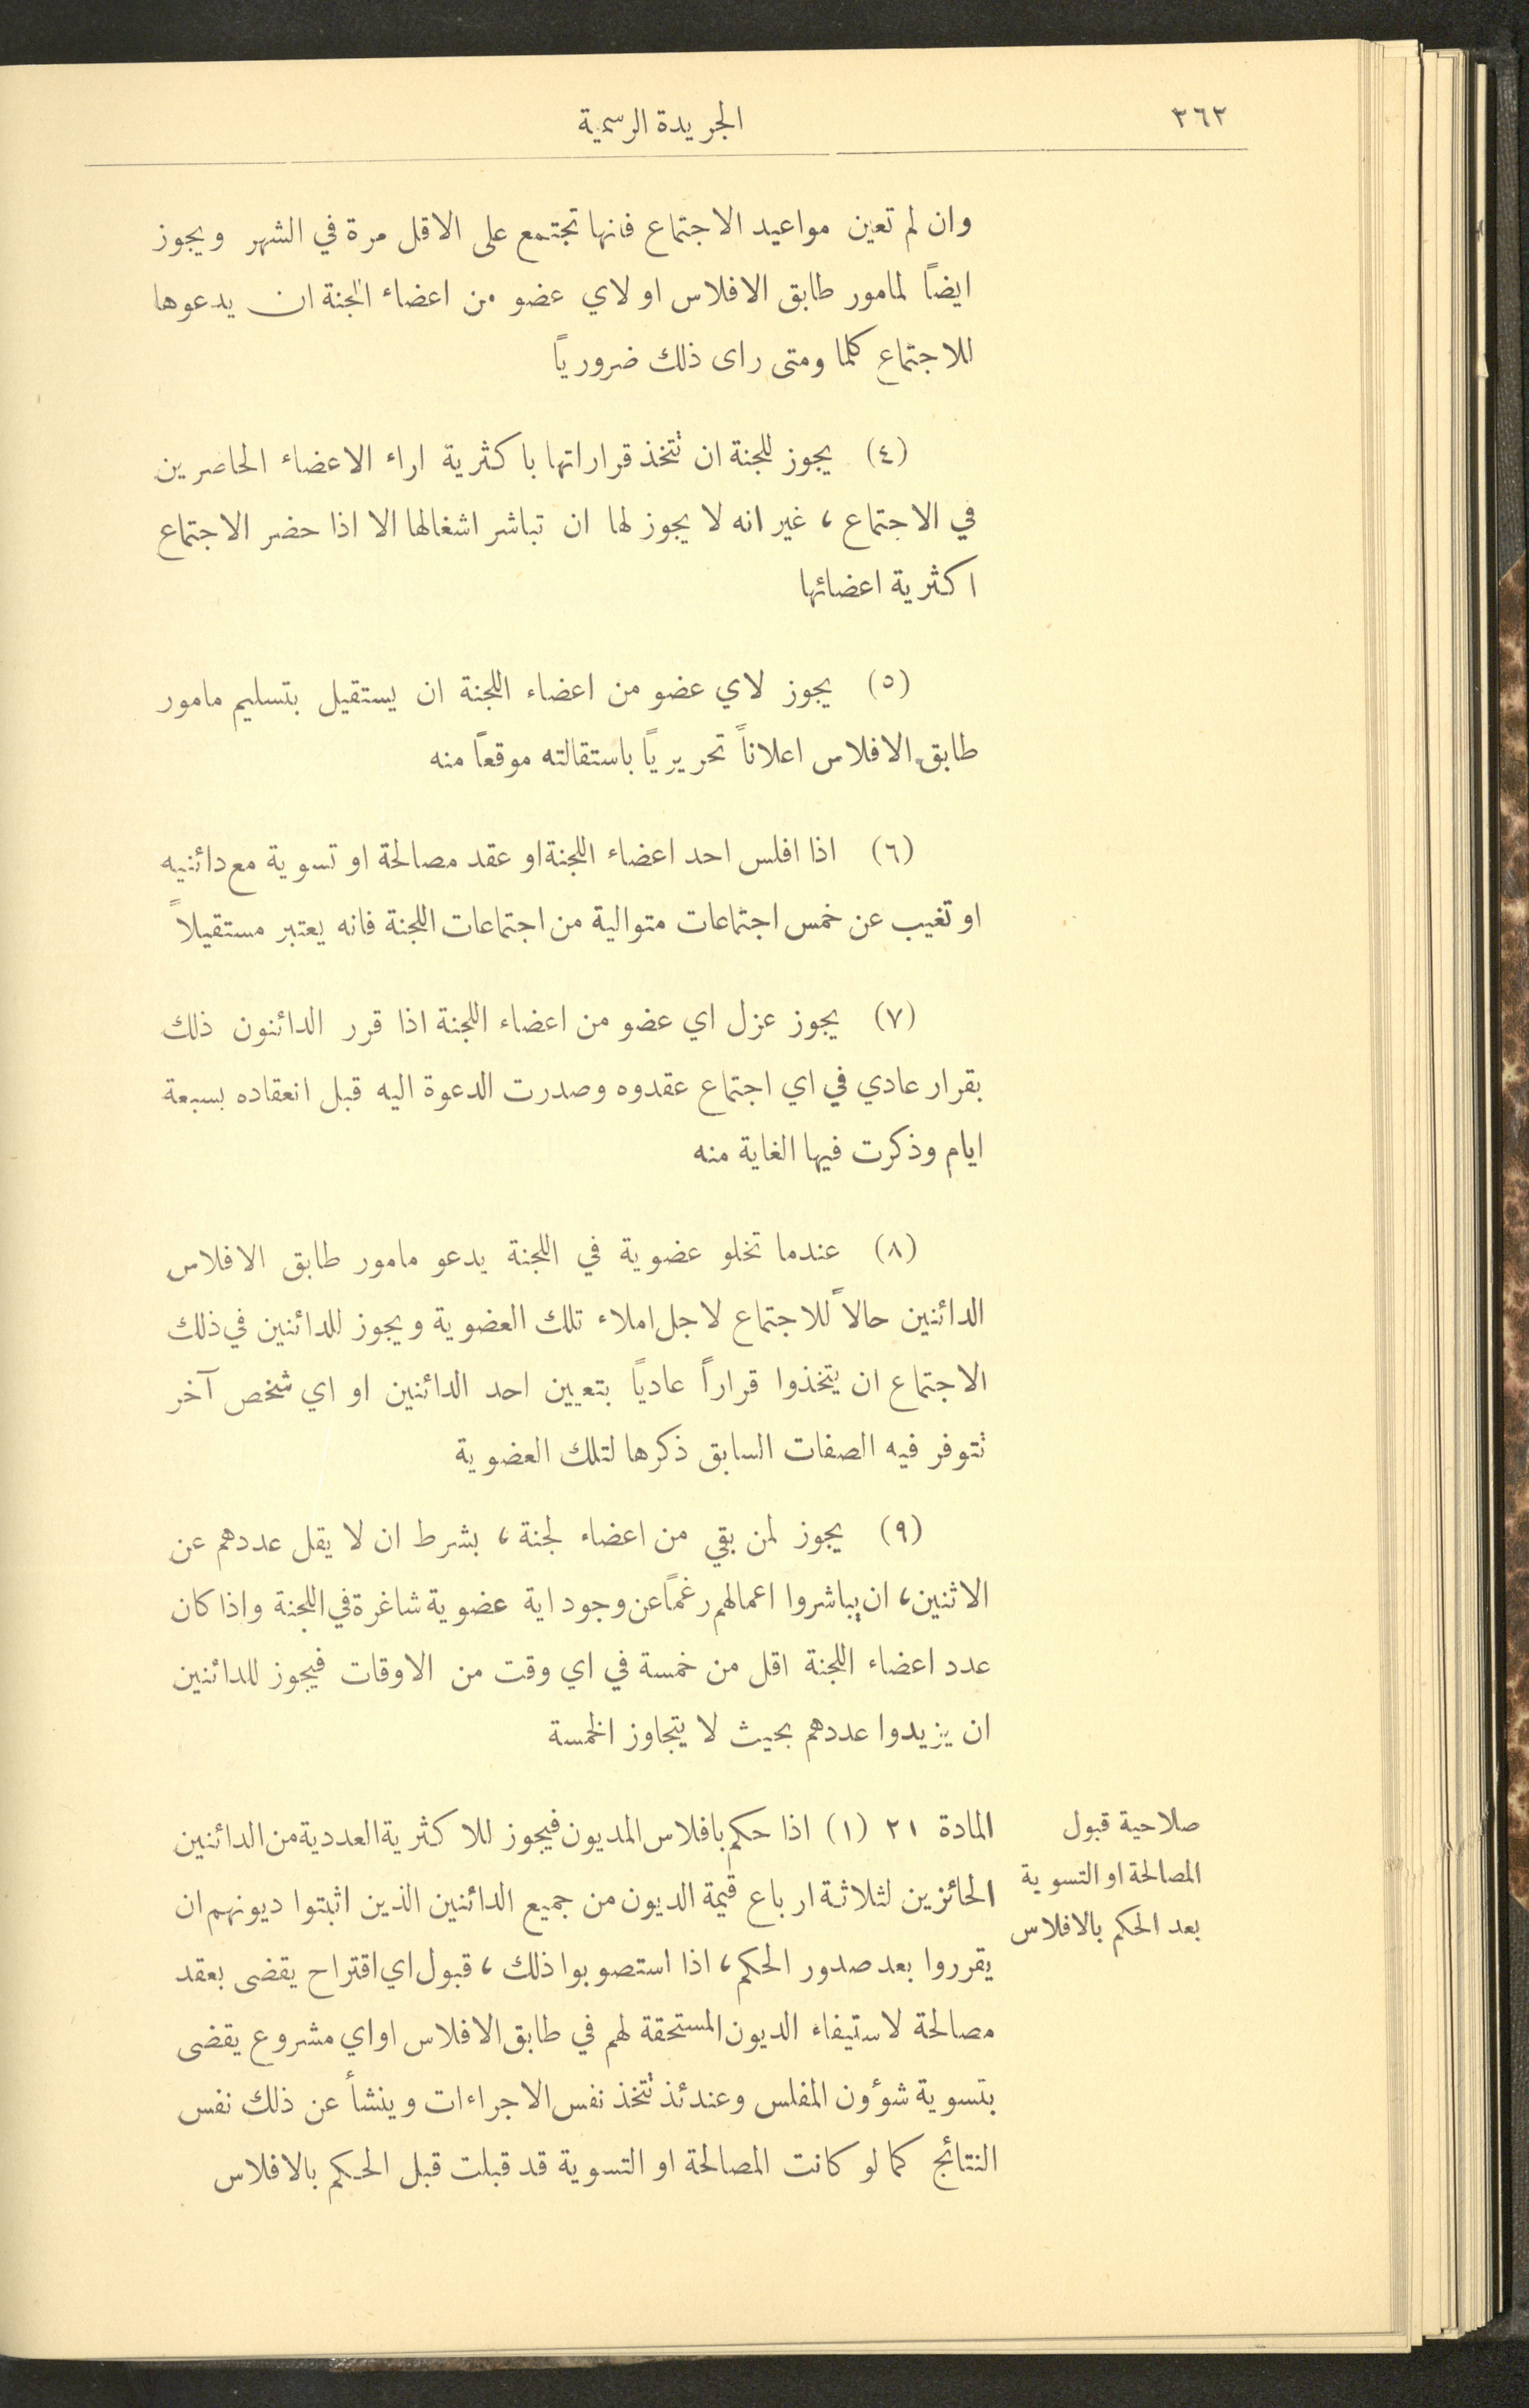 ٣٦٢
الجريدة الرسمية
وان لم تعين مواعيد الاجتماع فانها تجتمع على الاقل مرة في الشهر ويجوز
ايضاً لمامور طابق الافلاس او لاي عضو من اعضاء الجنة ان يدعوها
للاجتماع كلما ومتى راى ذلك ضرورياً
(٤) يجوز للجنة ان تتخذ قراراتها باكثرية اراء الاعضاء الحاضرين
في الاجتماع ، غير انه لا يجوز لها ان تباشر اشغالها الا اذا حضر الاجتماع
اكثرية اعضائها
(٥) يجوز لاي عضو من اعضاء اللجنة ان يستقيل بتسليم مامور
طابق الافلاس اعلاناً تحريرياً باستقالته موقعاً منه
(٦) اذا افلس احد اعضاء اللجنة او عقد مصالحة او تسوية مع دائنيه
او تغيب عن خمس اجتماعات متوالية من اجتماعات اللجنة فانه يعتبر مستقيلاً
(٧) يجوز عزل اي عضو من اعضاء اللجنة اذا قرر الدائنون ذلك
بقرار عادي في اي اجتماع عقدوه وصدرت الدعوة اليه قبل انعقاده بسبعة
ايام وذكرت فيها الغاية منه
(٨) عندما تخلو عضوية في اللجنة يدعو مامور طابق الافلاس
الدائنين حالاً للاجتماع لاجل املاء تلك العضوية ويجوز للدائنين في ذلك
الاجتماع ان يتخذوا قراراً عادياً بتعيين احد الدائنين او اي شخص آخر
تتوفر فيه الصفات السابق ذكرها لتلك العضوية
(٩) يجوز لمن بقي من اعضاء لجنة ، بشرط ان لا يقل عددهم عن
الاثنين ، ان يباشروا اعمالهم رغماً عن وجود اية عضوية شاغرة في اللجنة واذا كان
عدد اعضاء اللجنة اقل من خمسة في اي وقت من الاوقات فيجوز للدائنين
ان يزيدوا عددهم بحيث لا يتجاوز الخمسة
صلاحية قبول
المصالحة او التسوية
بعد الحكم بالافلاس
المادة ٢١ (١) اذا حكم بافلاس المديون فيجوز للاكثرية العددية من الدائنين
الحائزين لثلاثة ارباع قيمة الديون من جميع الدائنين الذين اثبتوا ديونهم ان
يقرروا بعد صدور الحكم ، اذا استصوبوا ذلك ، قبول اي اقتراح يقضى بعقد
مصالحة لاستيفاء الديون المستحقة لهم في طابق الافلاس او اي مشروع يقضى
بتسوية شؤون المفلس وعندئذ تتخذ نفس الاجراءات وينشأ عن ذلك نفس
النتائج كما لو كانت المصالحة او التسوية قد قبلت قبل الحكم بالافلاس